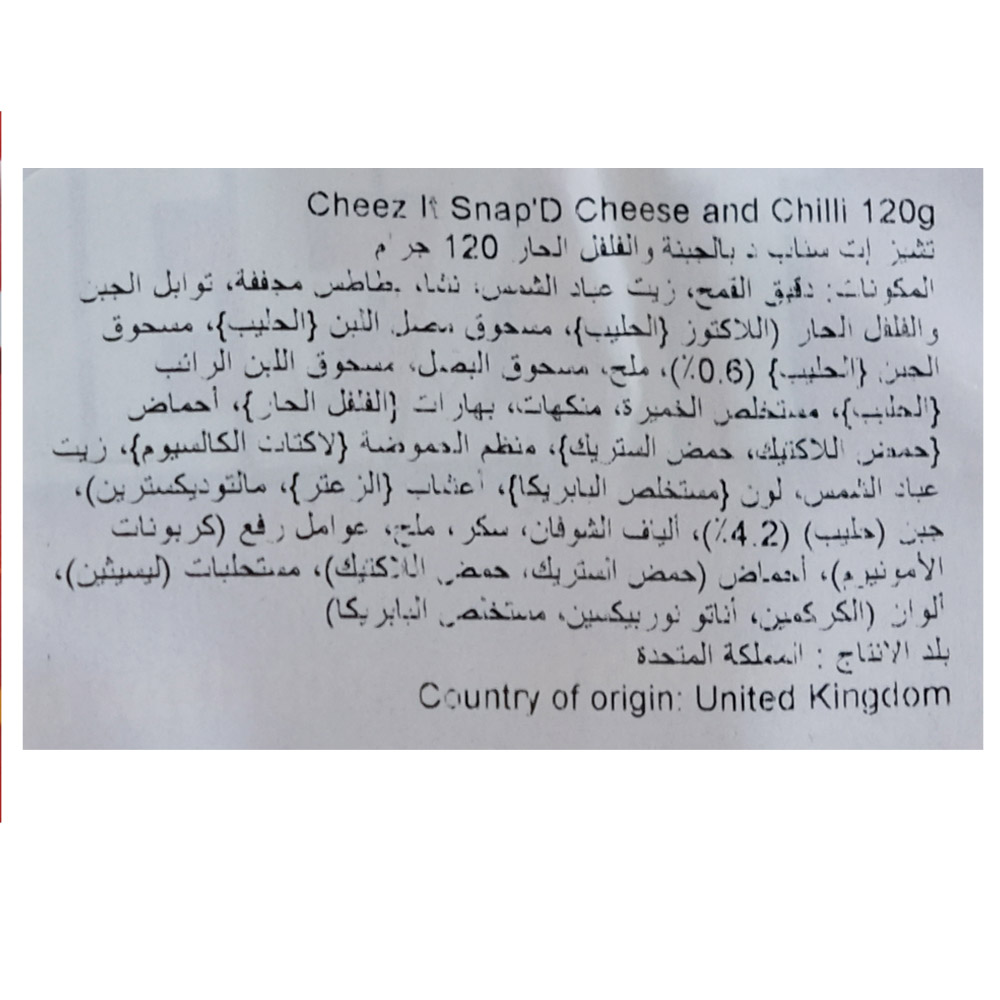 Cheez It Snap'D Cheese and Chilli 120g
تشيز إت سناب د بالجبنة والفلفل الحار 120 جرام
المكونات: دقيق القمح، زيت عباد الشمس، نشا، بطاطس مجففة، توابل الجبن
والفلفل الحار (اللاكتوز {الحليب}، مسحوق مصل اللبن {الحليب}، مسحوق
الجبن {الحليب} (0.6٪)، ملح، مسحوق البصل، مسحوق اللبن الرائب
{الحليب}، مستخلص الخميرة، منكهات، بهارات {الفلفل الحار}، أحماض
{حمض اللاكتيك، حمض الستريك}، منظم الحموضة {لاكتات الكالسيوم}، زيت
عباد الشمس، لون {مستخلص البابريكا}، أعشاب {الزعتر}، مالتوديكسترين)،
جبن (حليب) (4.2٪)، ألياف الشوفان، سكر، ملح، عوامل رفع (كربونات
الأمونيوم)، أحماض (حمض الستريك، حمض اللاكتيك)، مستحلبات (ليسيثين)،
ألوان (الكركمين، أناتو نوربيكسين، مستخلص البابريكا)
بلد الإنتاج : المملكة المتحدة
Country of origin: United Kingdom